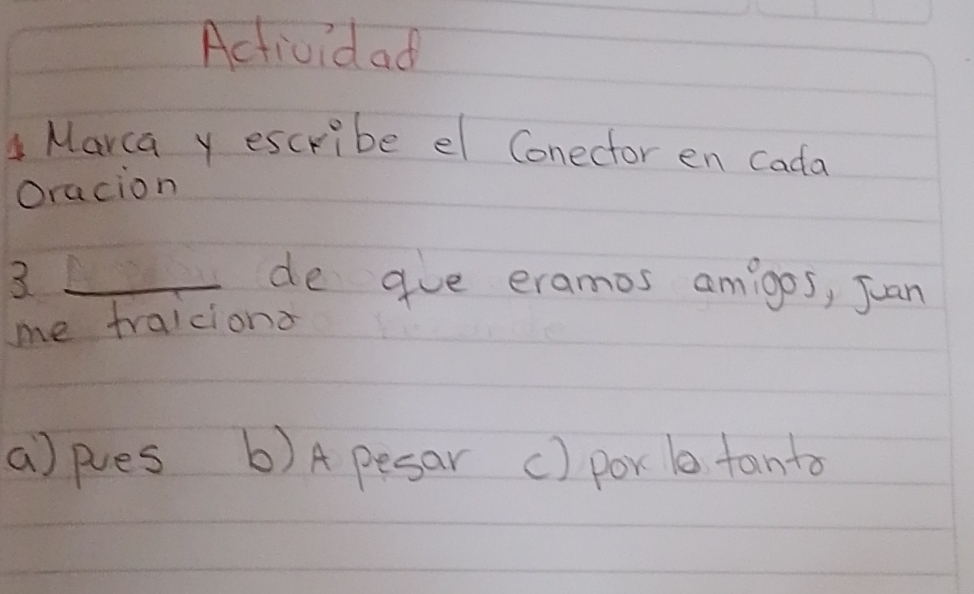 Actividad
1 Marca y escribe el Conector en cada
Oracion
3 ______ de que eramos amigos, Juan
me traiciono
a) pues b) A pesar c) por lo tanto